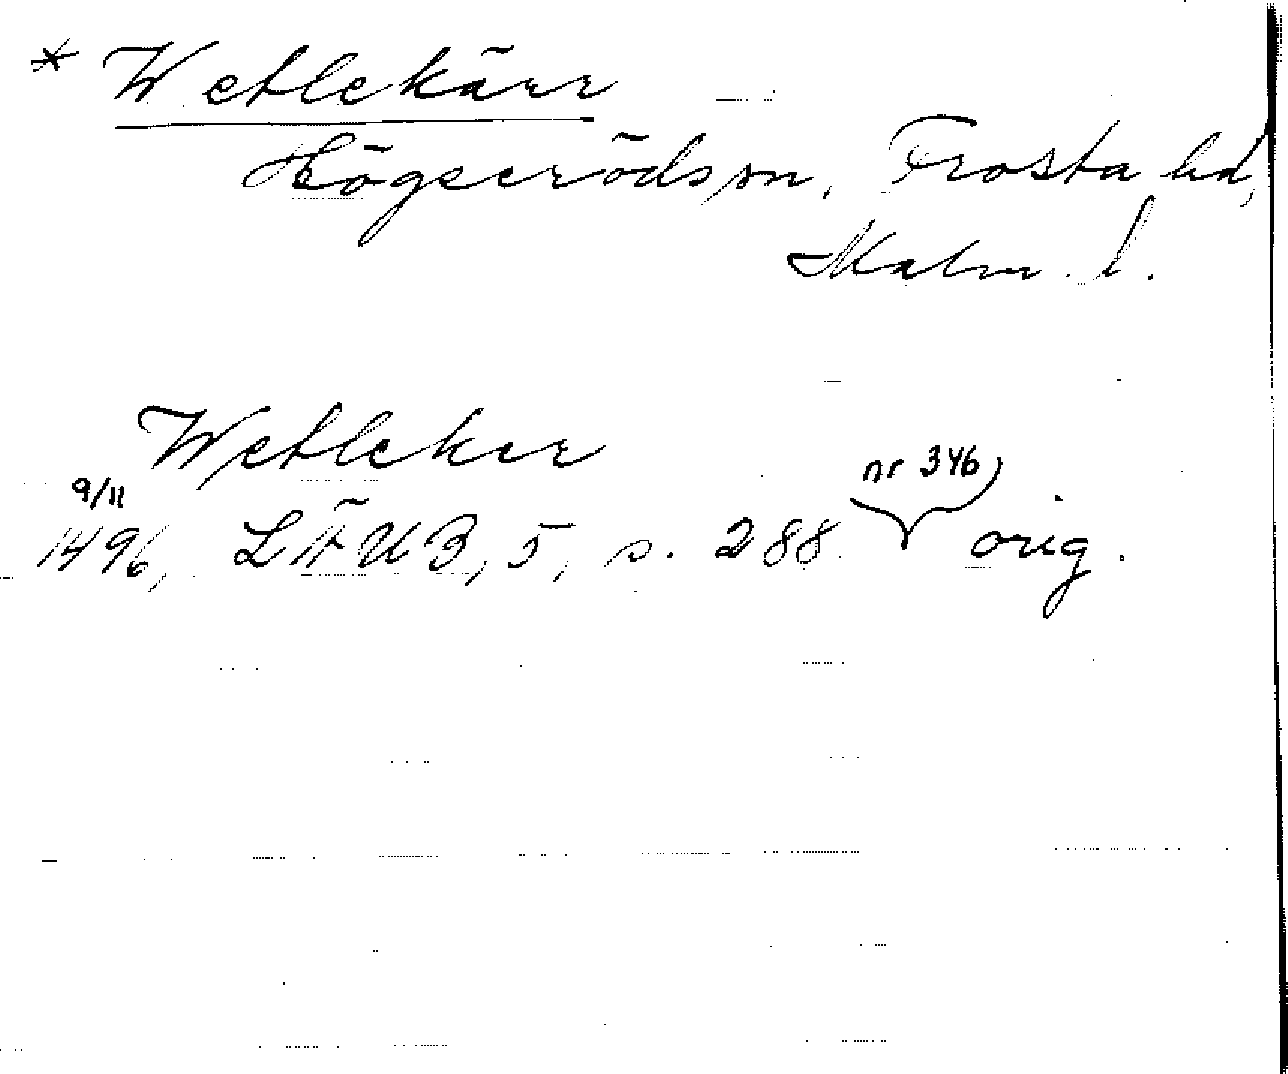 * Wetlekärr
Högserödssn, Frosta hd,
Malm. l.
Wetleker
9/11 nr 346
1496, LÄUB, 5, s. 288. orig.